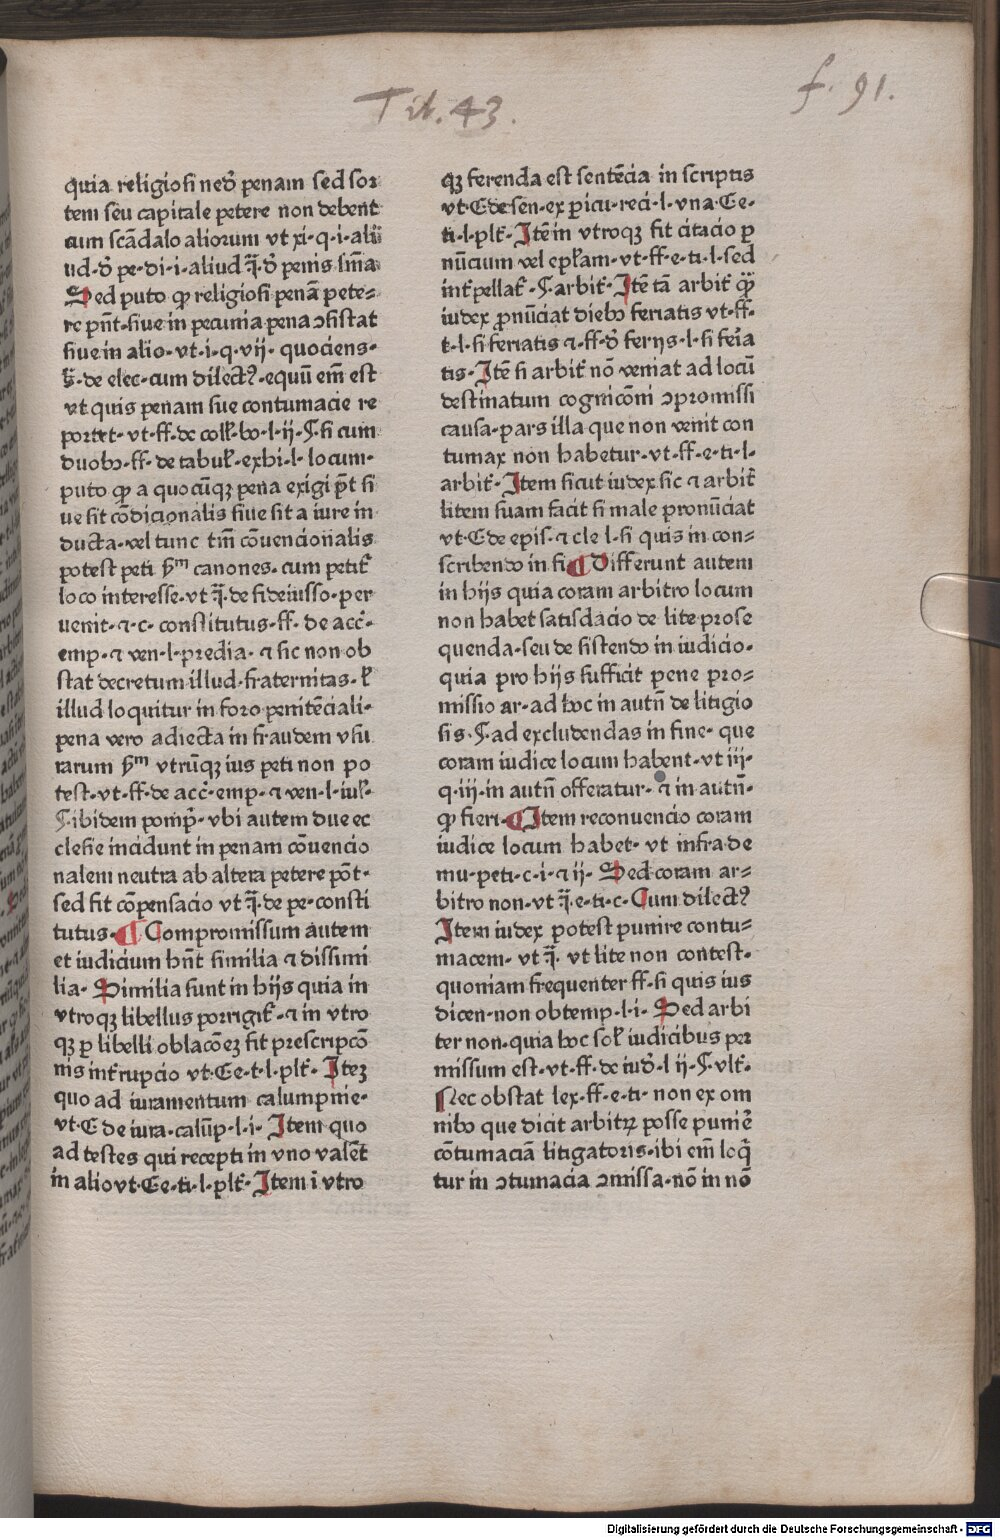 Tit. 43.
f. 91.
quia religiosi nedͫ penam sed sor
tem seu capitale petere non debent
cum scādalo aliorum vt xi·q·i·alij
ud·d̄ pe·di·i·aliud q̄·d̄ penis sm̄a
Sed puto ꝙ religiosi penā pete⸗
re pn̄t·siue in pecunia pena ↄsistat
siue in alio·vt·i·q·vij· quociens·
de elec·cum dilectꝰ·equū em̄ est
vt quis penam sue contumacie re
portet·vt·ff·de coll·bo·l·ij·¶·si cum
duobꝰ·ff·de tabul·exhi·l·locum·
puto ꝙ a quocūqꝫ pena exigi pt̄ si
ue sit cōdicionalis siue sit a iure in
ducta·vel tunc tm̄ cōuencionalis
potest peti ẜm canones·cum petit᷑
loco interesse·vt q̄·de fideiusso·per
uenit·⁊·c·constitutus·ff·de acc̄·
emp·⁊ ven·l·predia·⁊ sic non ob
stat decretum illud·fraternitas·
illud loquitur in foro penitēciali·
pena vero adiecta in fraudem vsu
rarum ẜm vtrūqꝫ ius peti non po
test·vt·ff·de acc̄·emp·⁊ ven·l·iul·
¶·ibidem pomp̄·vbi autem due ec
clesie incidunt in penam cōuencio
nalem neutra ab altera petere pōt·
sed fit cōpensacio vt q̄·de pe·consti
tutus·¶ Compromissum autem
et iudicium hn̄t similia ⁊ dissimi
lia·Similia sunt in hijs quia in
vtroqꝫ libellus porrigit᷑·⁊ in vtro
qꝫ ꝑ libelli oblacōeꝫ fit prescripcō
nis int᷑rupcio vt·C·e·t·l·plt᷑·Iteꝫ
quo ad iuramentum calumpnie·
vt·C de iura·calūp·l·i·Item quo
ad testes qui recepti in vno valēt
in alio vt·C·e·ti·l·plt᷑·Item i vtro
qꝫ ferenda est sentēcia in scriptis
vt·C de sen·ex ꝑicu·reci·l·vna·C·e·
ti·l·plt᷑·Itē in vtroqꝫ fit citacio ꝑ
nūcium vel epl̄am·vt·ff·e·ti·l·sed
int᷑pellat᷑·¶·arbit᷑·Itē tā arbit᷑ ꝙ̄
iudex ꝓnūciat diebꝰ feriatis vt·ff·
t·l·si feriatis ⁊·ff·d̄ ferijs·l·si fei᷑a
tis·Itē si arbit᷑ nō veniat ad locū
destinatum cognicōni ↄpromissi
causa·pars illa que non venit con
tumax non habetur·vt·ff·e·ti·l·
arbit᷑·Item sicut iudex sic ⁊ arbit᷑
litem suam facit si male pronūciat
vt·C de epis·⁊ cle l·si quis in con⸗
scribendo in fi ¶ Differunt autem
in hijs quia coram arbitro locum
non habet satisdacio de lite prose
quenda·seu de sistendo in iudicio·
quia pro hijs sufficit pene pro⸗
missio ar·ad hoc in autn̄ de litigio
sis·¶·ad excludendas in fine·que
coram iudice locum habent·vt iij·
q·iij·in autn̄ offeratur·⁊ in autn̄·
ꝙ fieri·¶ Item reconuencio coram
iudice locum habet·vt infra de
mu·peti·c·i·⁊ ij·Sed coram ar⸗
bitro non·vt q̄·e·ti·c·Cum dilectꝰ
Item iudex potest punire contu⸗
macem·vt q̄·vt lite non contest·
quoniam frequenter ff·si quis ius
dicen·non obtemp·l·i·Sed arbi
ter non·quia hoc sol iudicibus per
missum est·vt·ff·de iud̄·l ij·¶·vlt᷑·
Nec obstat lex·ff·e·ti·non ex om
nibꝰ que dicit arbitꝝ posse punie᷑
cōtumaciā litigatoris·ibi em̄ loq̄
tur in ↄtumacia ↄmissa·nō in nō
Digitalisierung gefördert durch die Deutsche Forschungsgemeinschaft - DFG